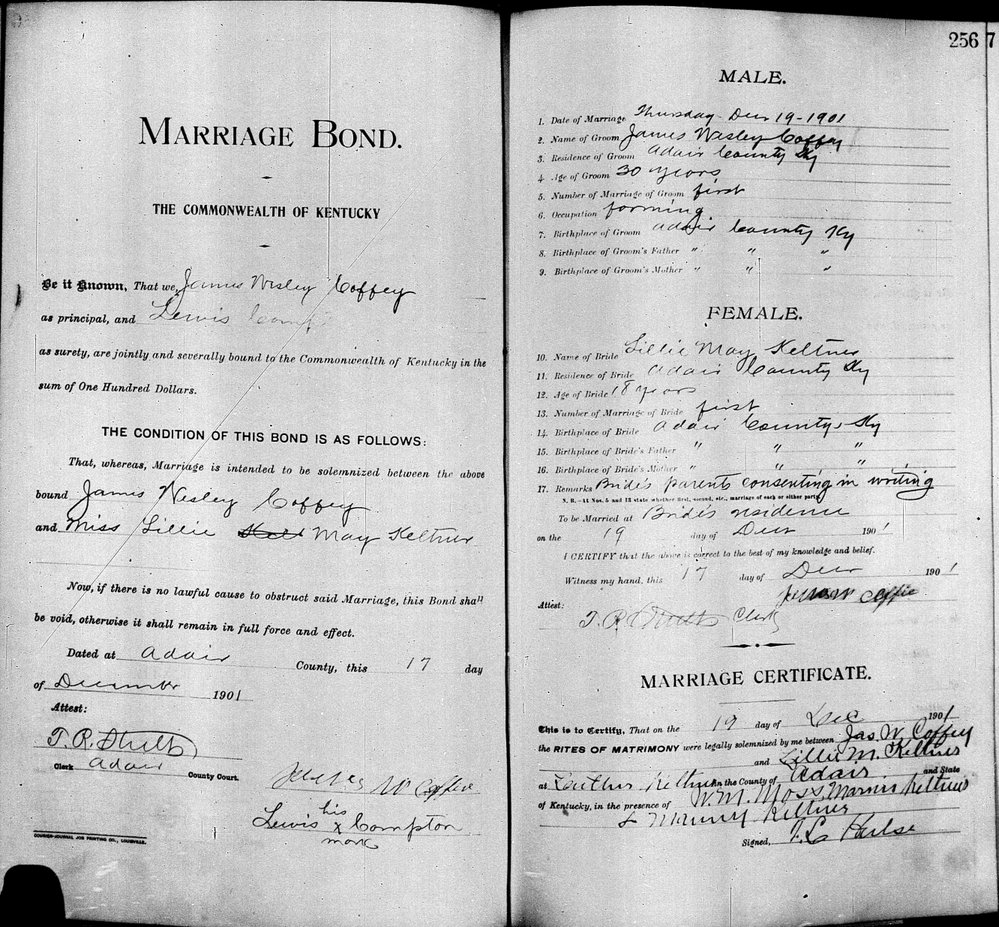 MARRIAGE BOND.
THE COMMONWEALTH OF KENTUCKY
Be it Known, That we, James Wesley Coffey
as principal, and Lewis Comp
as surety, are jointly and severally bound to the Commonwealth of Kentucky in the
sum of One Hundred Dollars.
THE CONDITION OF THIS BOND IS AS FOLLOWS:
That, whereas, Marriage is intended to be solemnized between the above
bound James Wesley Coffey
and Miss Lillie May Keltner
Now, if there is no lawful cause to obstruct said Marriage, this Bond shall
be void, otherwise it shall remain in full force and effect.
Dated at Adair County, this 17 day
of December 1901
Attest:
T. R. Stults
Clerk Adair County Court.
James W Coffie
his
Lewis x Compton
mark
COURIER-JOURNAL JOB PRINTING CO., LOUISVILLE.
256 7
MALE.
1. Date of Marriage Thursday Decr 19-1901
2. Name of Groom James Wesley Coffey
3. Residence of Groom Adair County Ky
4. Age of Groom 30 years
5. Number of Marriage of Groom first
6. Occupation farming
7. Birthplace of Groom Adair County Ky
8. Birthplace of Groom's Father " " "
9. Birthplace of Groom's Mother " " "
FEMALE.
10. Name of Bride Lillie May Keltner
11. Residence of Bride Adair County Ky
12. Age of Bride 18 years
13. Number of Marriage of Bride first
14. Birthplace of Bride Adair County, Ky
15. Birthplace of Bride's Father " " "
16. Birthplace of Bride's Mother " " "
17. Remarks Bride's parents consenting in writing
N. B.—At Nos. 5 and 13 state whether first, second, etc., marriage of each or either party.
To be Married at Bride's residence
on the 19 day of Decr 1901
I CERTIFY that the above is correct to the best of my knowledge and belief.
Witness my hand, this 17 day of Decr 1901
James W Coffie
Attest:
T. R. Stults Clerk
MARRIAGE CERTIFICATE.
This is to Certify, That on the 19 day of Dec 1901
the RITES OF MATRIMONY were legally solemnized by me between Jas. W. Coffey
and Lillie M. Keltner
at Luther Keltner in the County of Adair and State
of Kentucky, in the presence of W. M. Moss, Keltner
& Keltner
Signed,